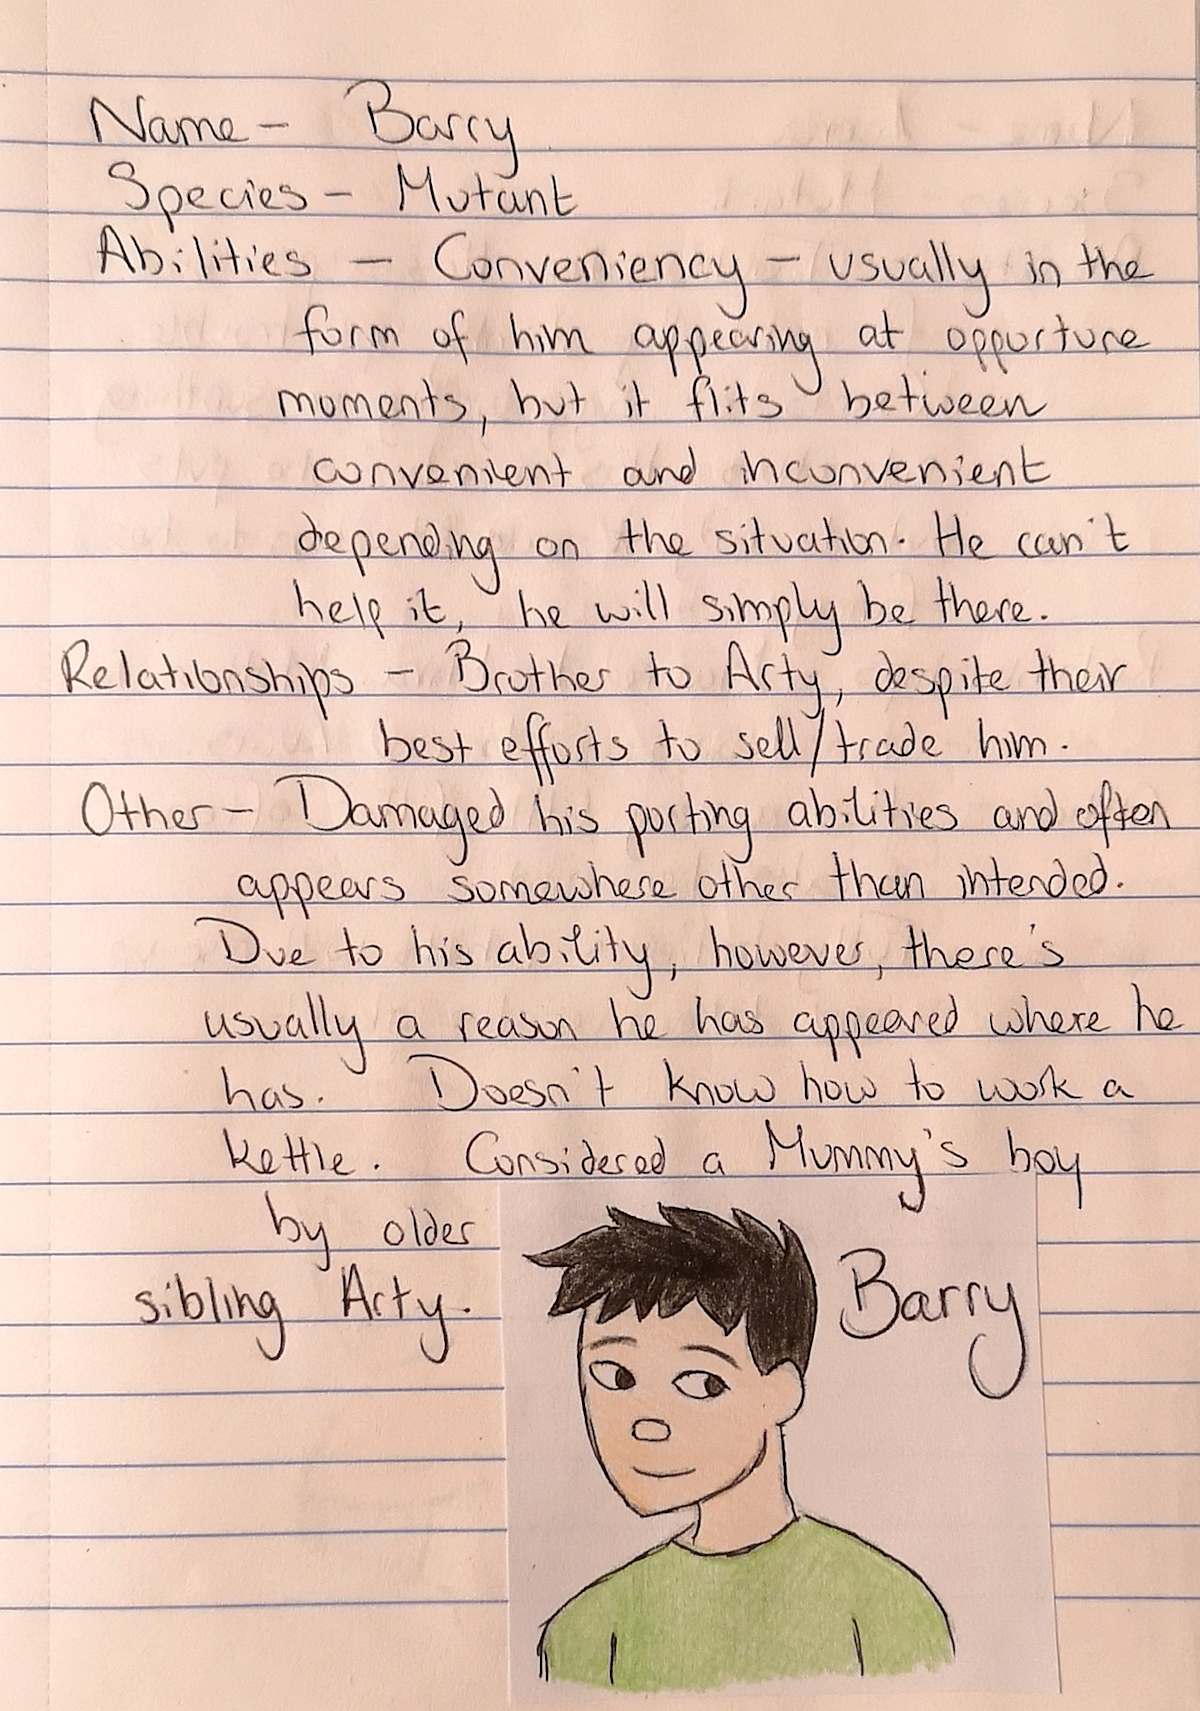 Name - Barry
Species - Mutant
Abilities - Conveniency - usually in the
form of him appearing at opportune
moments, but it flits between
convenient and inconvenient
depending on the situation. He can't
help it, he will simply be there.
Relationships - Brother to Arty, despite their
best efforts to sell/trade him.
Other - Damaged his porting abilities and often
appears somewhere other than intended.
Due to his ability, however, there's
usually a reason he has appeared where he
has. Doesn't know how to work a
kettle. Considered a Mummy's boy
by older
sibling Arty.
Barry